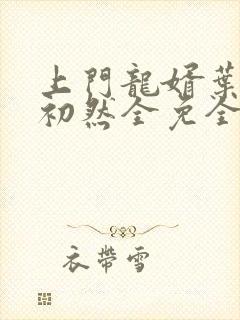 上門龍婿葉
初然全免全
衣帶雪